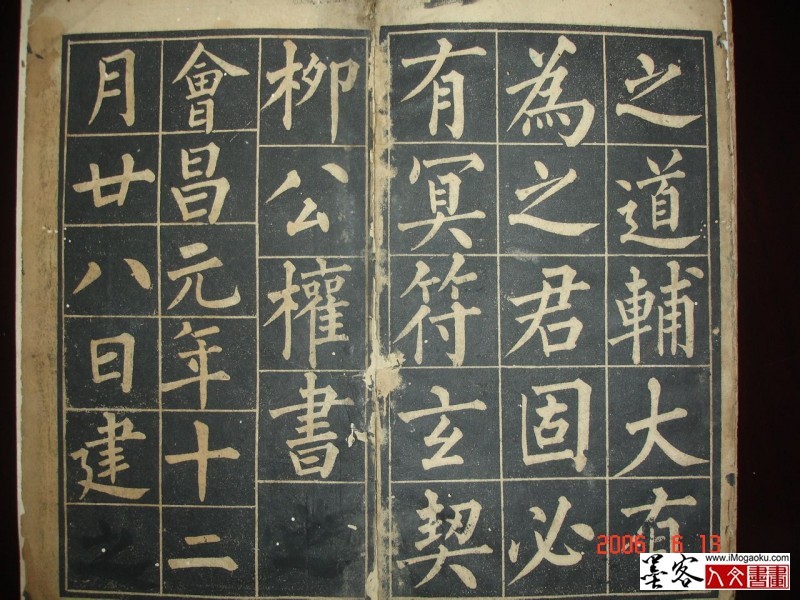 之道輔大有
為之君固必
有冥符玄契
柳公權書
會昌元年十二
月廿八日建
2006 6 13
墨客
www.iMogaoku.com
人文書畫